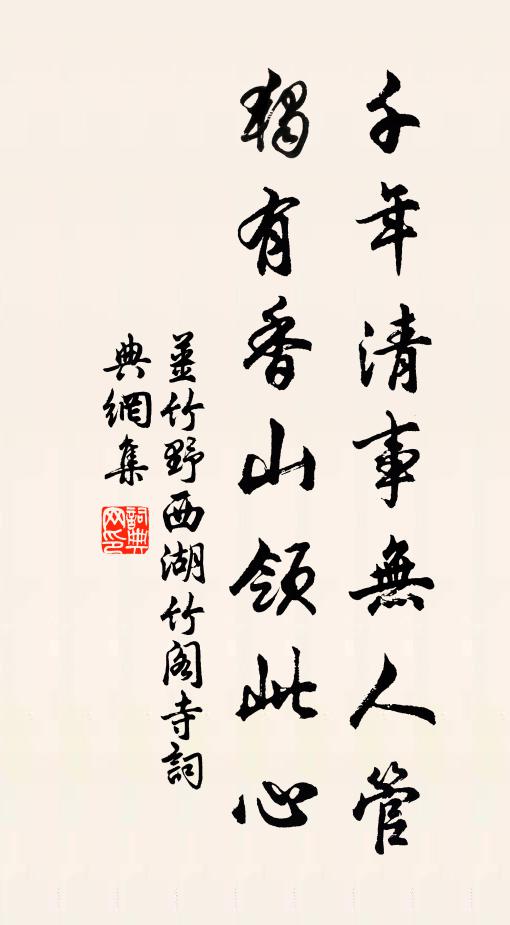 千年清事無人管
獨有香山領此心
薑竹野西湖竹阁寺詞
典網集
詞典網印